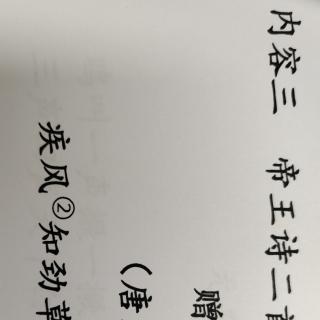 内容三 帝王诗二首
赠
（唐
疾风②知劲草